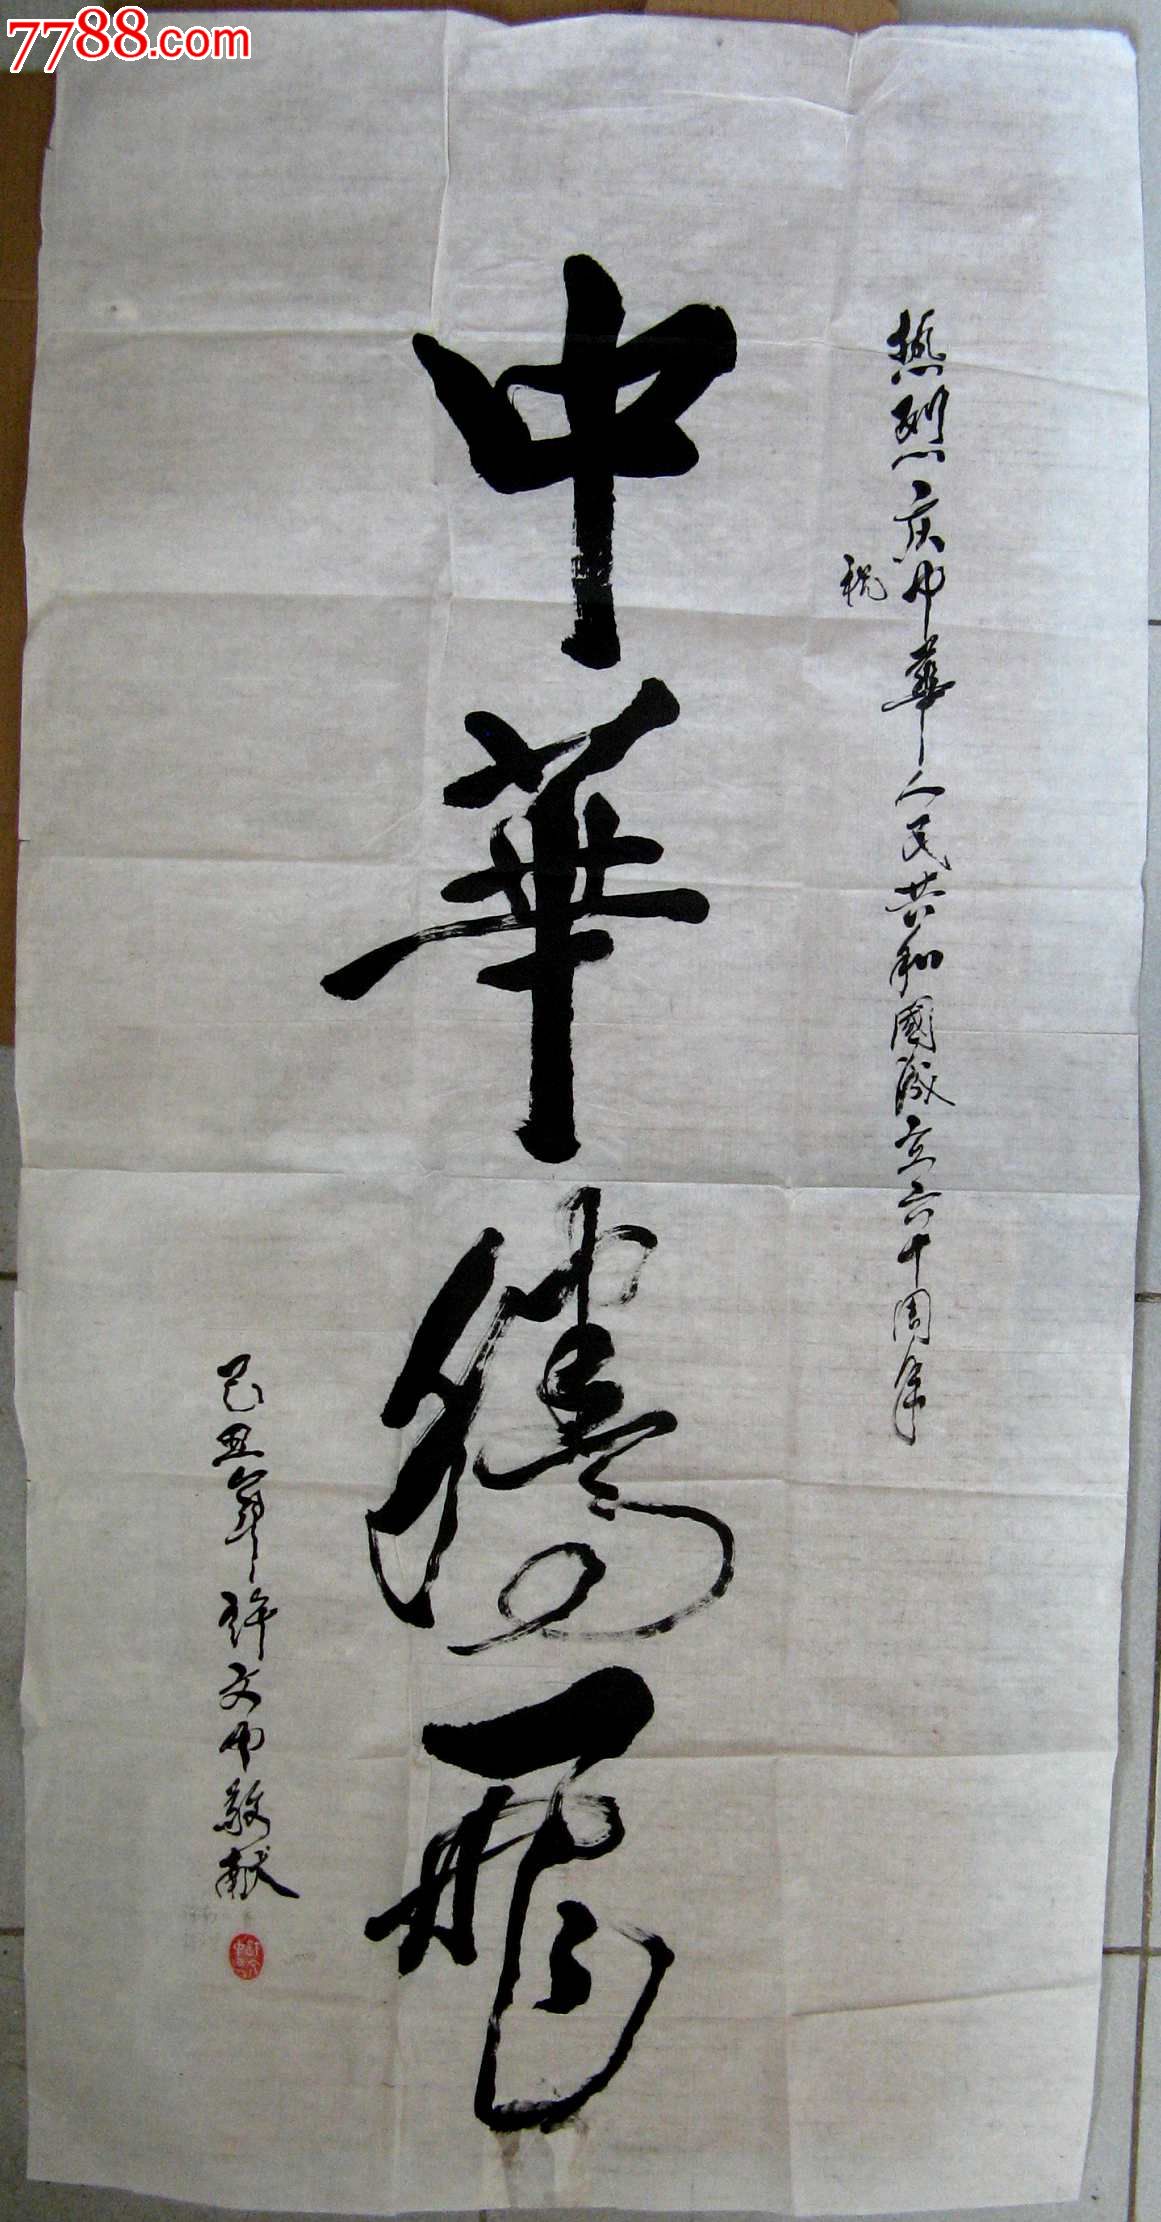 7788.com
热烈庆中華人民共和國成立六十周年
祝
中華騰飛
己丑年许文中敬献